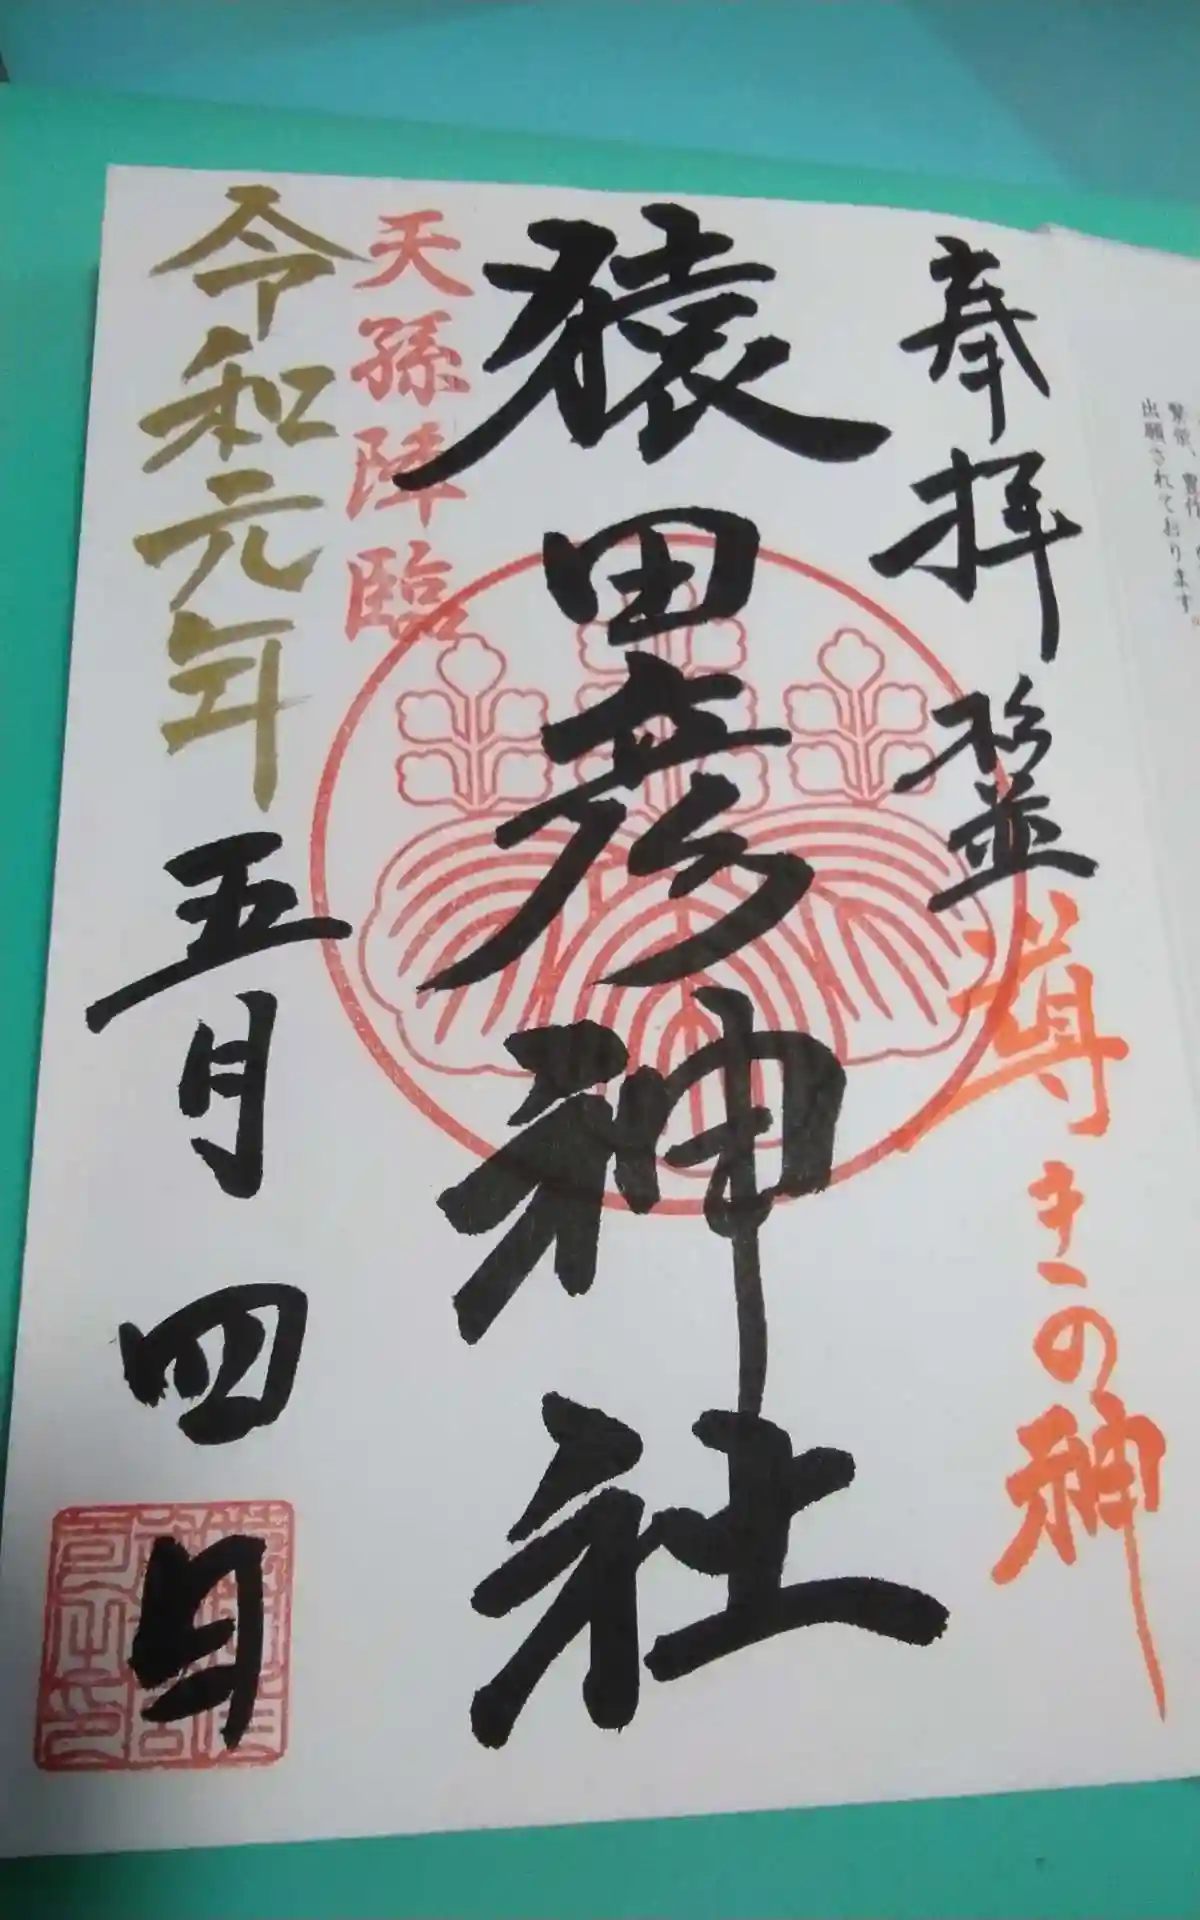 繁栄、豊作
出願されております。
奉拝
尊きの神
猿田彦神社
天孫降臨
令和元年五月四日